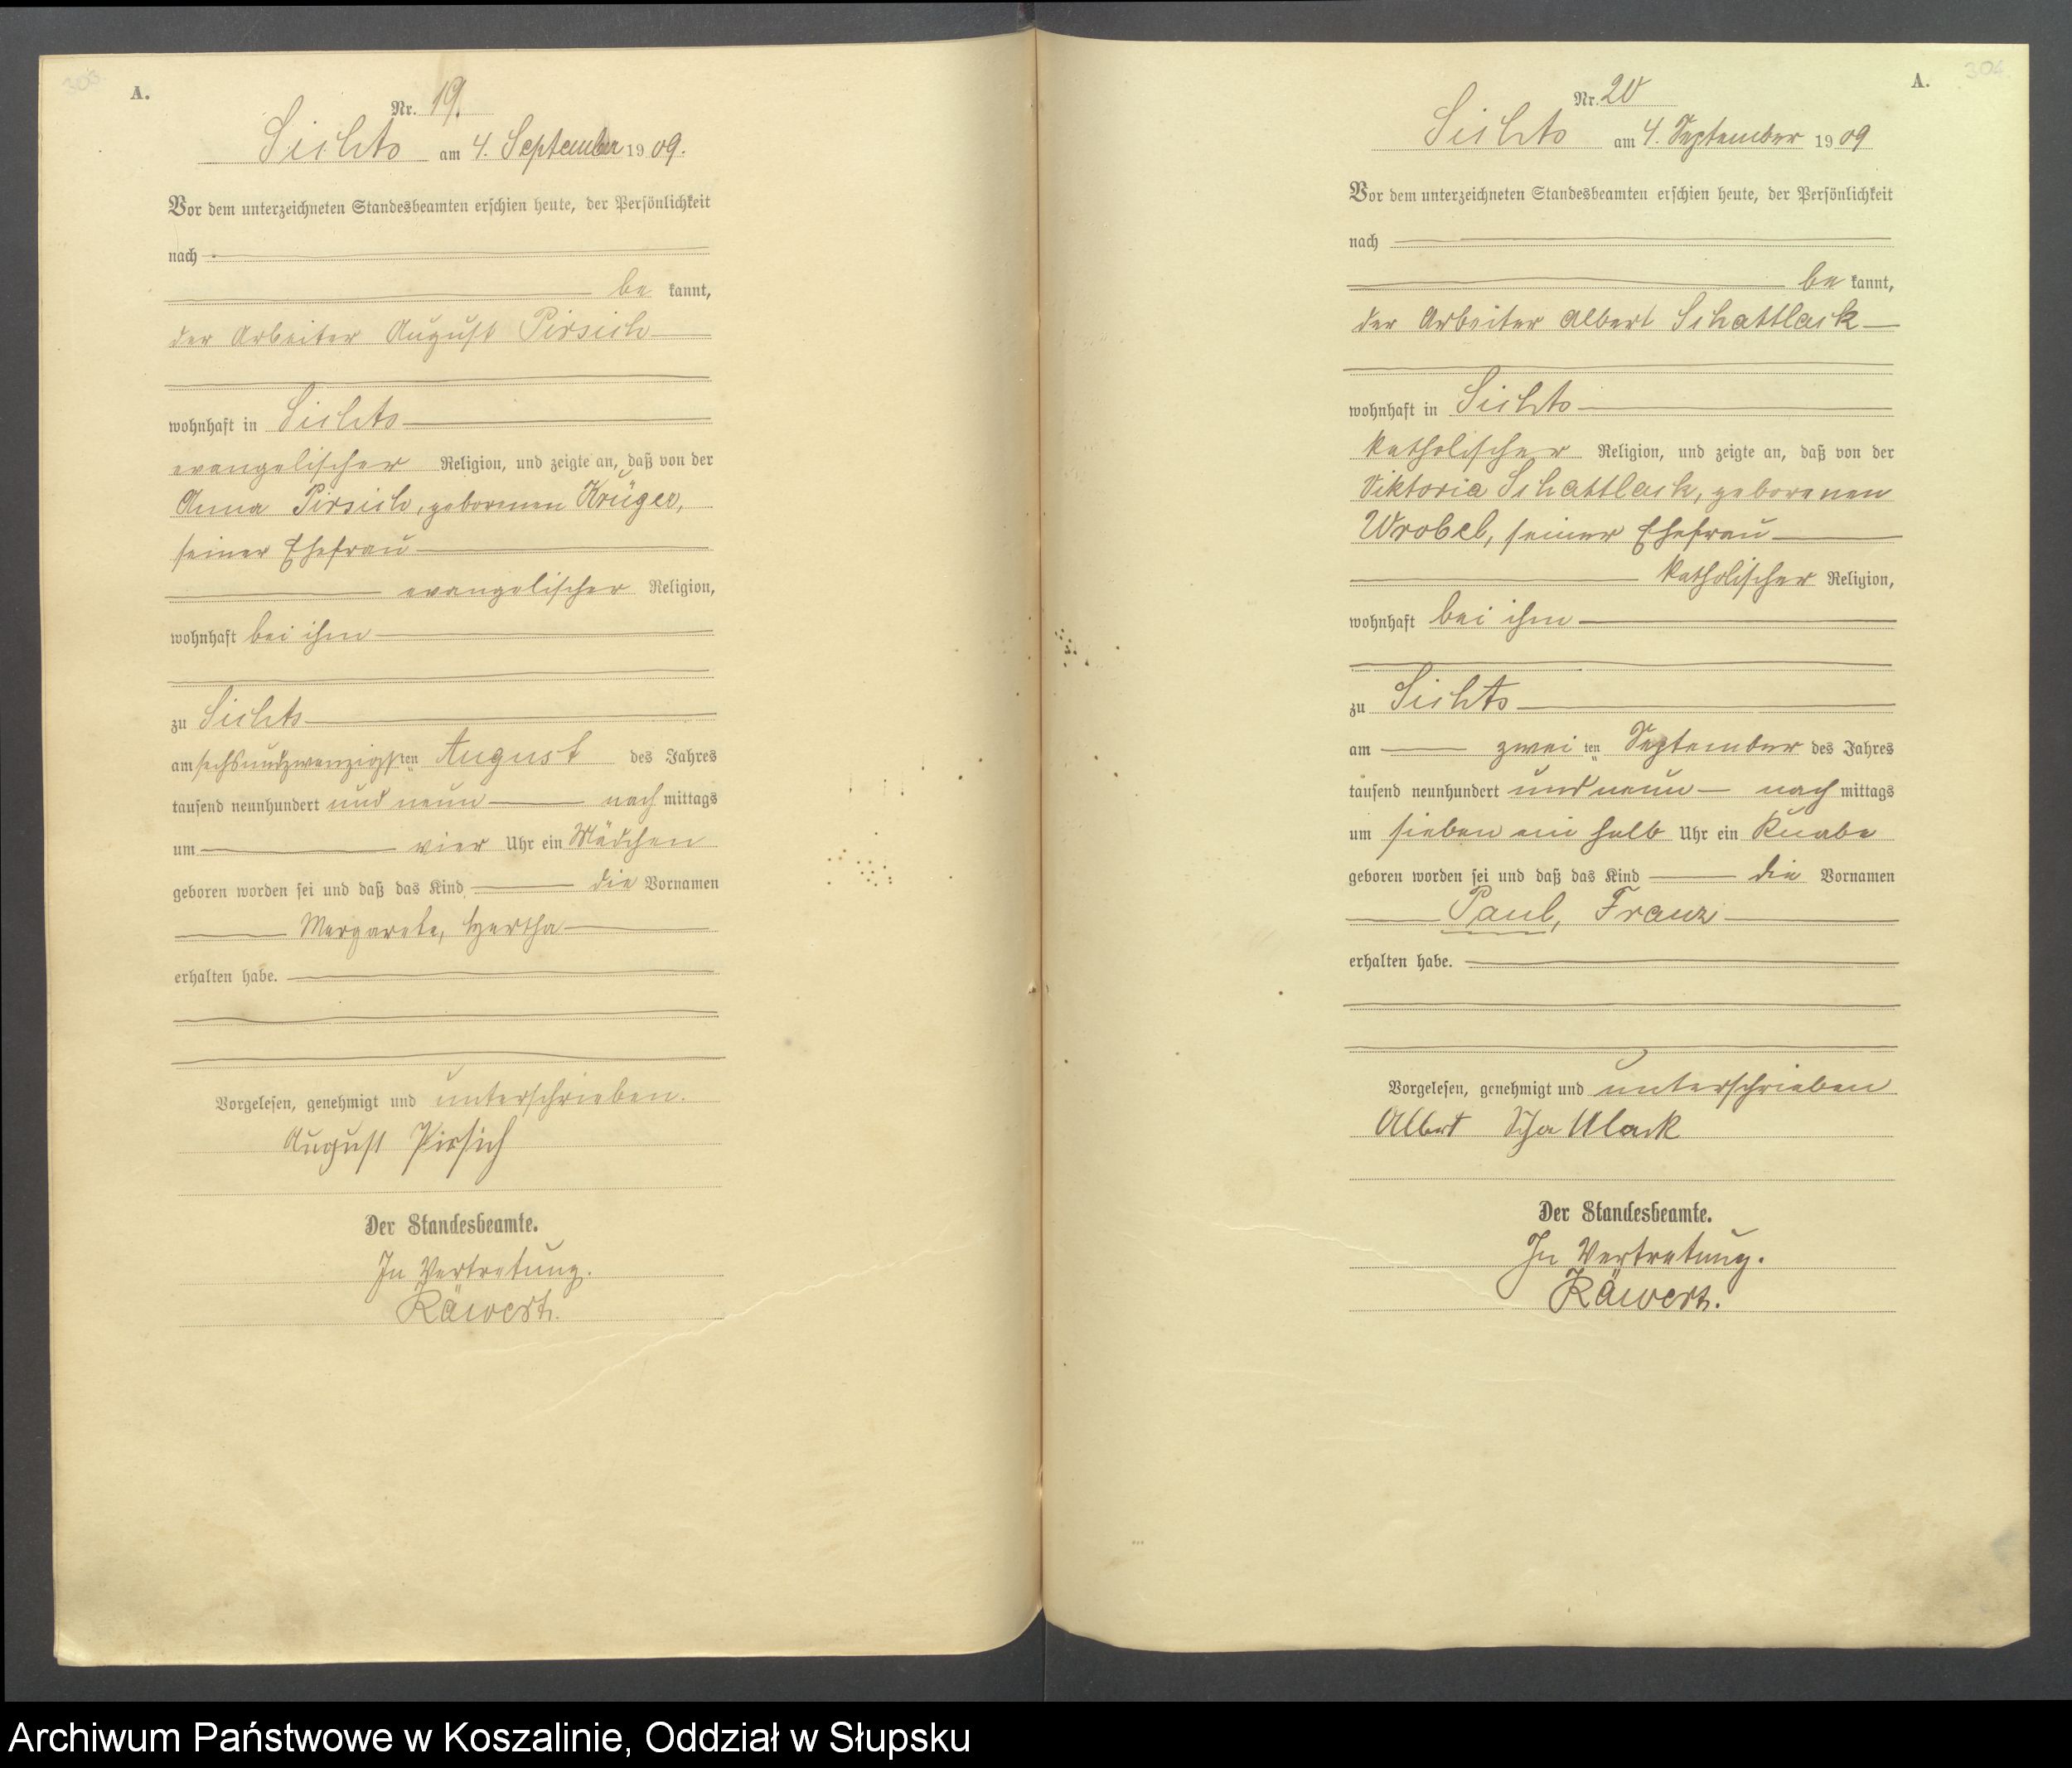 303
A.
Nr. 19.
Sichts am 4. September 1909.
Vor dem unterzeichneten Standesbeamten erschien heute, der Persönlichkeit
nach
be kannt,
der Arbeiter August Pirsich
wohnhaft in Sichts
evangelischer Religion, und zeigte an, daß von der
Anna Pirsich, geborenen Krüger,
seiner Ehefrau
evangelischer Religion,
wohnhaft bei ihm
zu Sichts
am sechsundzwanzigsten August des Jahres
tausend neunhundert und neun nach mittags
um vier Uhr ein Mädchen
geboren worden sei und daß das Kind die Vornamen
Margarete, Hertha
erhalten habe.
Vorgelesen, genehmigt und unterschrieben.
August Pirsich
Der Standesbeamte.
In Vertretung.
304
A.
Nr. 20
Sichts am 4. September 1909
Vor dem unterzeichneten Standesbeamten erschien heute, der Persönlichkeit
nach
be kannt,
der Arbeiter Albert Schattlack
wohnhaft in Sichts
katholischer Religion, und zeigte an, daß von der
Viktoria Schattlack, geborenen
Wrobel, seiner Ehefrau
katholischer Religion,
wohnhaft bei ihm
zu Sichts
am zweiten September des Jahres
tausend neunhundert und neun nach mittags
um sieben ein halb Uhr ein Knabe
geboren worden sei und daß das Kind die Vornamen
Paul, Franz
erhalten habe.
Vorgelesen, genehmigt und unterschrieben
Albert Schattlack
Der Standesbeamte.
In Vertretung.
Archiwum Państwowe w Koszalinie, Oddział w Słupsku